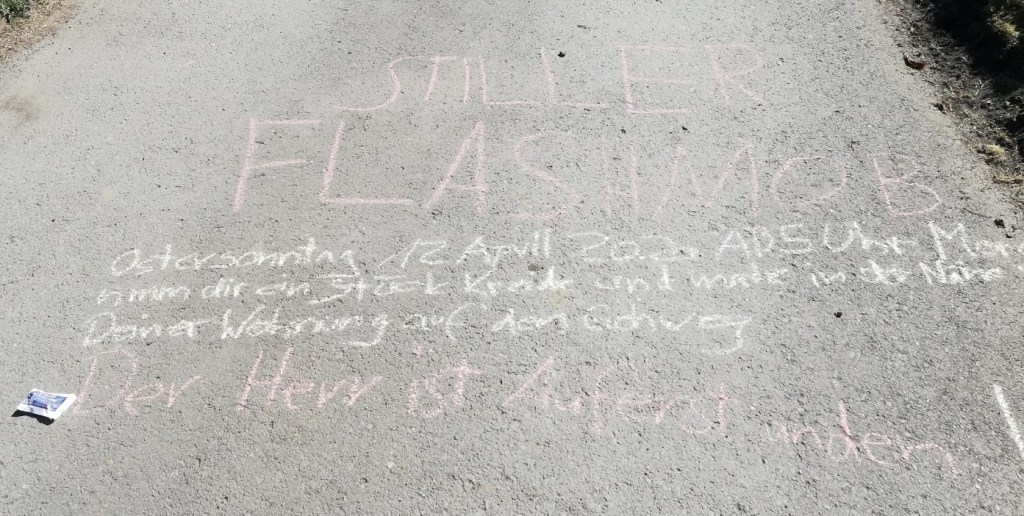 STILLER
FLASHMOB
Ostersonntag 12 April 2020 Uhr
nimm dir ein Stück Kreide und male in der Nähe
Deiner Wohnung auf den Gehweg
Der Herr ist Auferstanden